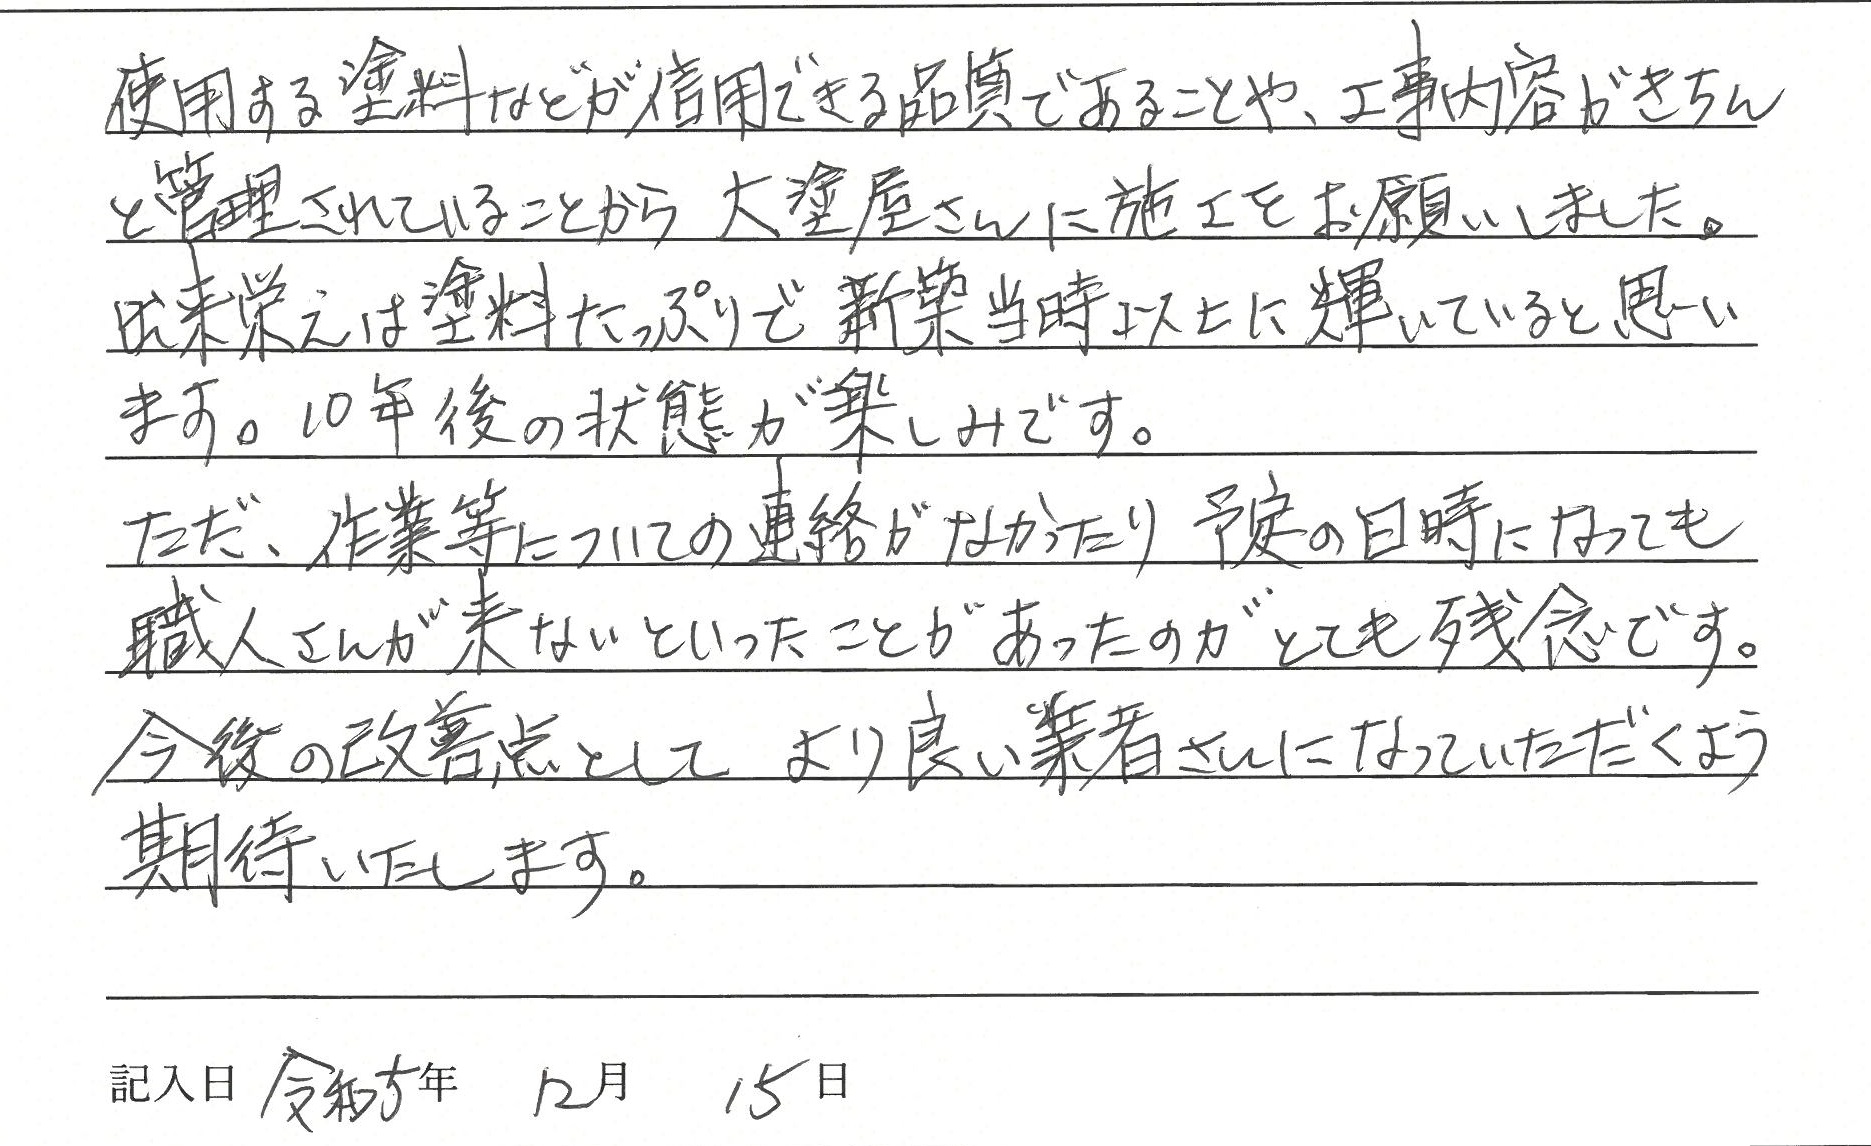 使用する塗料などが信用できる品質であることや、工事内容がきちん
と管理されていることから 大塗屋さんに施工をお願いしました。
出来栄えは塗料たっぷりで 新築当時以上に輝いていると思い
ます。10年後の状態が楽しみです。
ただ、作業等についての連絡がなかったり 予定の日時になっても
職人さんが来ないといったことがあったのがとても残念です。
今後の改善点として より良い業者さんになっていただくよう
期待いたします。
記入日 令和5年 12月 15日